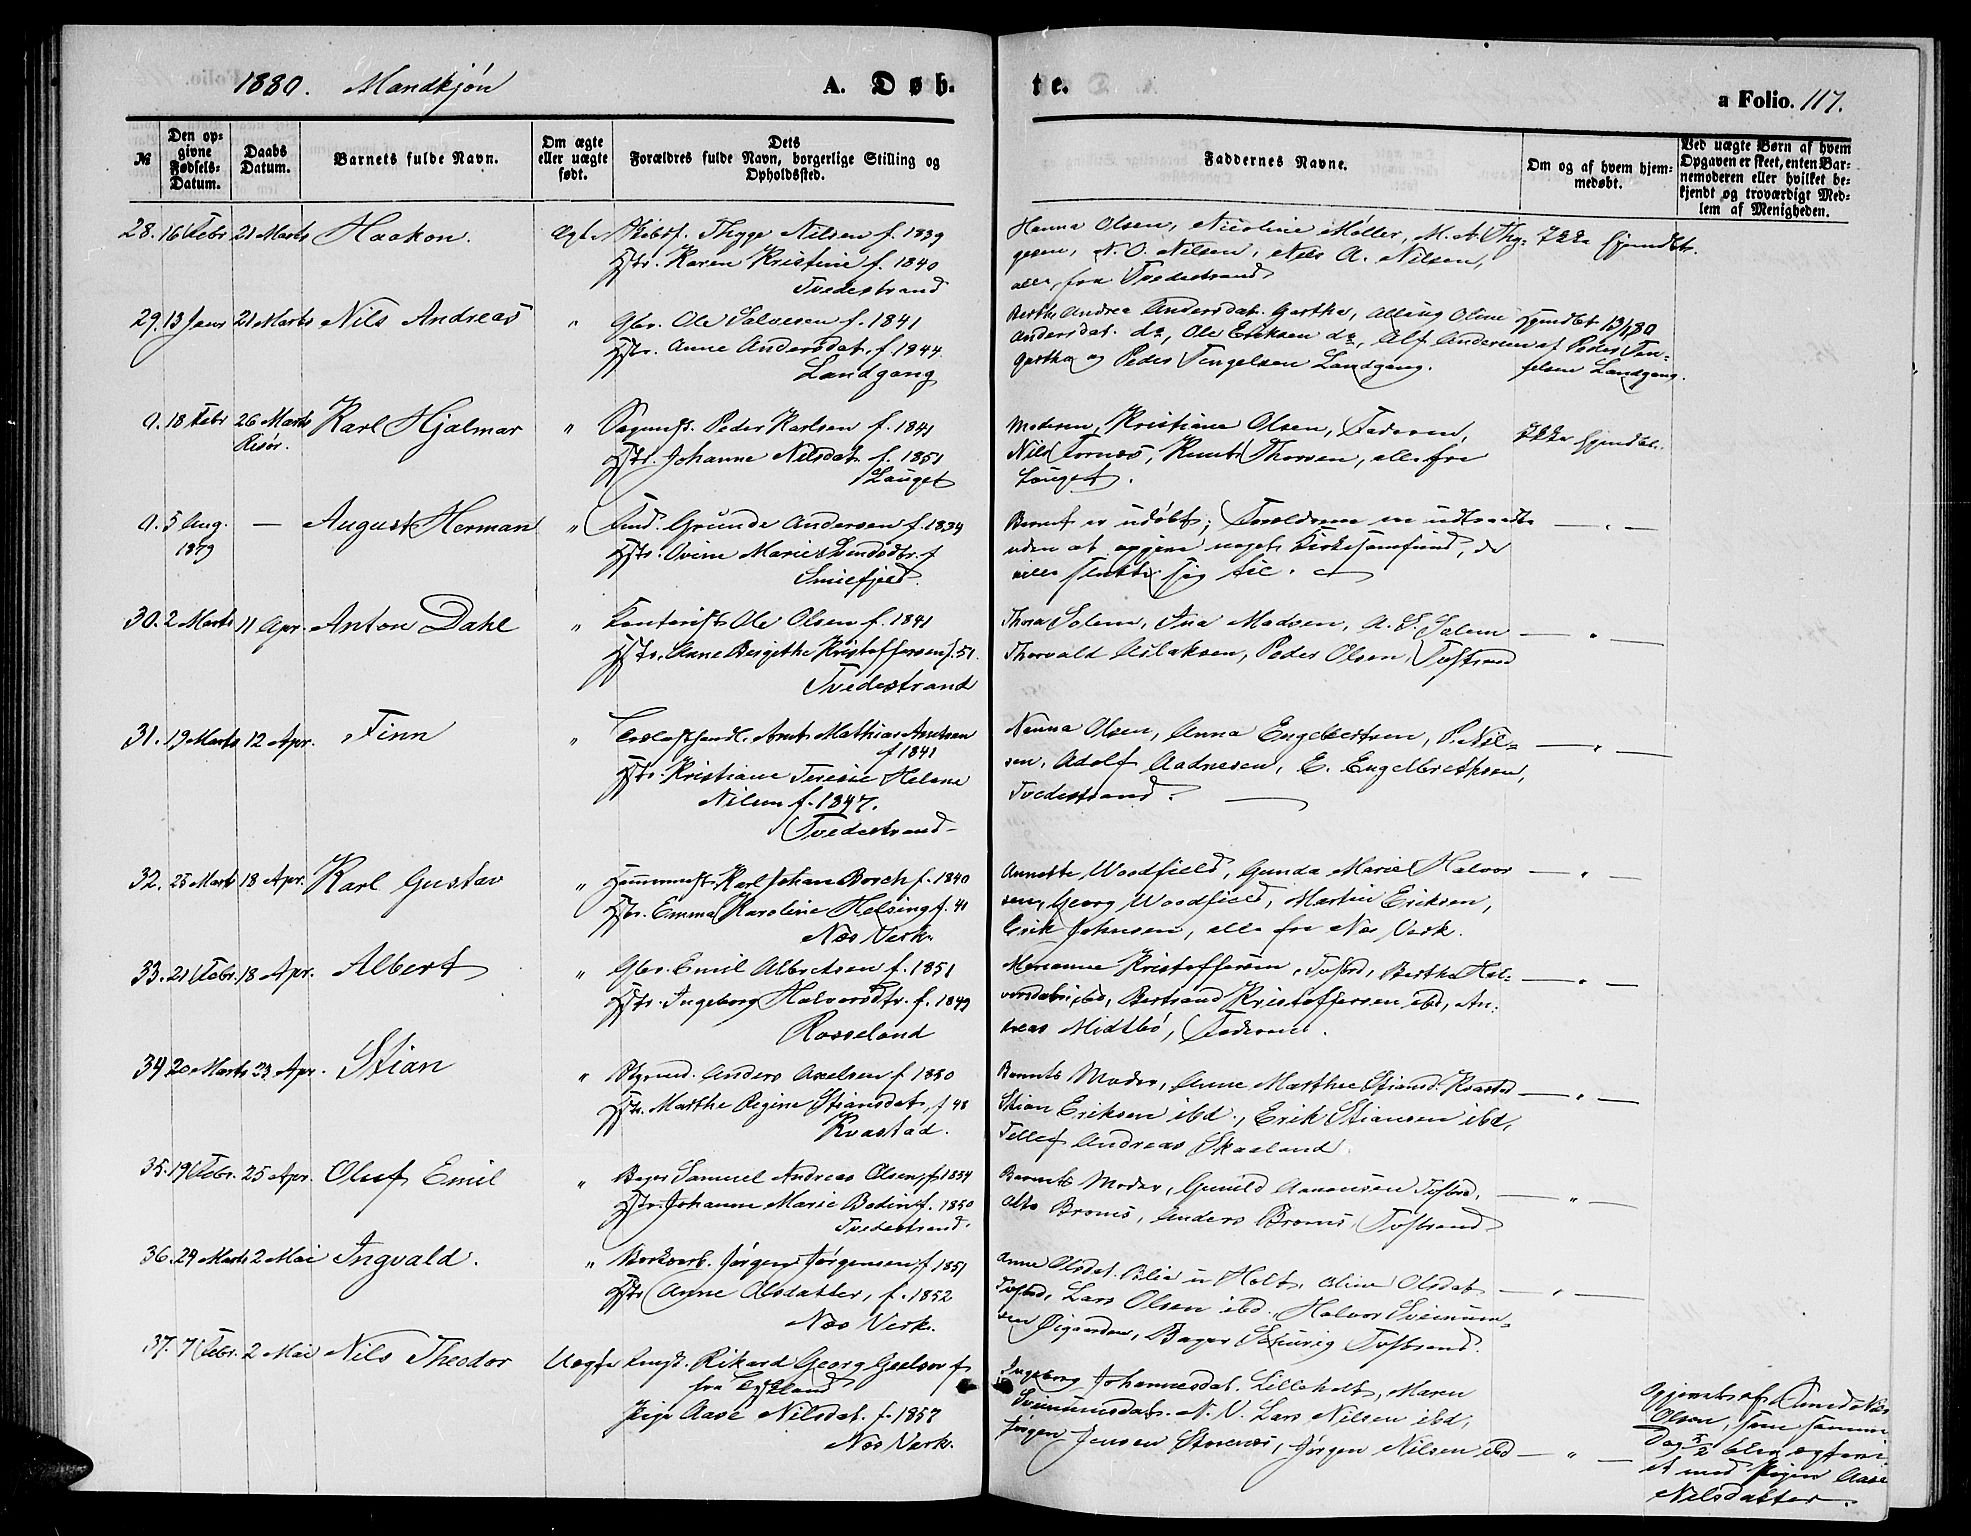 1880. Mandkjøn A. Døb- te. a Folio. 117.
№
Den op-
givne
Fødsels-
Datum.
Daabs
Datum.
Barnets fulde Navn.
Om ægte
eller uægte
født.
Dets
Forældres fulde Navn, borgerlige Stilling og
Opholdssted.
Faddernes Navne.
Om og af hvem hjem-
medøbt.
Ved uægte Børn af hvem
Opgaven er skeet, enten Bar-
nemoderen eller hvilket be-
kjendt og troværdigt Med-
lem af Menigheden.
28. 16 Febr 21 Marts Haakon. Ægte Skibsf. Thygge Nilsen f. 1839
Hstr. Karen Kristine f. 1840
Tvedestrand
Hanna Olsen, Nicoline Møller, M. A. Thy-
gesen, N. O. Nilsen, Nils A. Nilsen,
alle fra Tvedestrand
Ikke hjemdbt.
29. 13 Janr 21 Marts Nils Andreas " Gbr. Ole Salvesen f. 1841
Hstr. Anne Andersdat. f. 1844
Landgang
Berthe Andrea Andersdat. Gjertha, Olene
Andersdat. do, Ole Eriksen do, Alf Andersen
og Peder Landgang.
Hjemdbt 13/1 80
af Peder
Landgang.
0. 18 Febr 26 Marts Karl Hjalmar " Peder Karlsen f. 1841
Risør.
Hstr. Johanne Nilsdat. f. 1851
Lauget
Moderen, Kristiane Olsen, Faderen,
Nils Tornæs, Knut Thorsen, alle fra
Lauget.
Ikke hjemdbt.
0. 5 Aug. — August Herman " Grunde Andersen f. 1834
1879
Hstr. Marie f
Barnet er udøbt; Forældrene ere udtraadte
uden at opgive noget Kirkesamfund, de
ville slutte sig til.
— " —
30. 2 Marts 11 Apr. Anton Dahl " Kontorist Ole Olsen f. 1841
Hstr. Anne Birgithe Kristoffersen f. 51.
Tvedestrand
Thora Salem, Ina Madsen, A. E. Salem
Thorvald Aslaksen, Peder Olsen, Tvstrand
— " —
31. 19 Marts 12 Apr. Finn " Arnt Mathias Arntsen
f 1841
Hstr. Kristiane Teresie Helene
Nilsen f. 1847.
Tvedestrand
Nanna Olsen, Anna Engebretsen, P. Nil-
sen, Adolf Aadnesen, E. Engelbrethsen,
Tvedestrand.
— " —
32. 25 Marts 18 Apr. Karl Gustav " Hammersm. Karl Johan Borch f. 1840
Hstr. Emma Karoline Helsing f. 41
Næs Verk.
Annette Woodfield, Gunda Marie Halvor
sen, Georg Woodfield, Martin Eriksen,
Erik Johnsen, alle fra Næs Verk.
— " —
33. 21 Febr. 18 Apr. Albert " Gbr. Emil Albretsen f. 1851
Hstr. Ingeborg Halvorsdtr. f. 1849
Rosseland
Marianne Kristoffersen, Tvstrd, Berthe Hal-
vorsdatr ibd, Bertrand Kristoffersen ibd, An-
dreas Midtbø, Faderen.
— " —
34 20 Marts 23 Apr. Stian " Anders Axelsen f 1850
Hstr. Marthe Regine Stiansdat, f 48
Kvastad.
Barnets Moder, Anne Marthe Stiansd. Kvastad
Stian Eriksen ibd., Erik Stiansen ibd,
Tellef Andreas Skaaland.
— " —
35. 19 Febr. 25 Apr. Oluf Emil " Bager Samuel Andreas Olsen, f. 1854
Hstr. Johanne Marie Bodin f. 1850
Tvedestrand.
Barnets Moder, Gunild Aanonsen Tvstrd,
Alto Broms, Anders Broms, Tvstrand
— " —
36. 24 Marts 2 Mai Ingvald. " Jørgen Jørgensen f 1851
Hstr. Anne Olsdatter, f. 1852
Næs Verk.
Anne Olsdat. Holt, Oline Olsdat
Tvstrd, Lars Olsen ibd, Halvor
sen Øigaarden, Bager Tvstrand.
— " —
37. 7 Febr. 2 Mai Nils Theodor Uægte Rikard Georg f
fra
Pige Aase Nilsdat. f. 1857
Næs Verk.
Ingeborg Johannesdat. Lilleholt, Maren
N. V. Lars Nilsen ibd,
Jørgen Jensen Jørgen Nilsen ibd
— " —
Opgivet af
Olsen, som samme
Dag 2/5 blev
et med Pigen Aase
Nilsdatter.